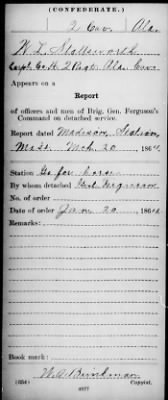 (CONFEDERATE.)
2 Cav. Ala.
W. L. Stallworth
Capt. Co. H, 2 Regt. Ala. Cav.
Appears on a
Report
of officers and men of Brig. Gen. Ferguson's
Command on detached service.
Report dated Madison Station,
Miss. Mch. 20, 1864.
Station Go for horse
By whom detached Genl Ferguson
No. of order
Date of order Jan 20, 1864
Remarks:
Book mark:
W. A. Brinkman
(654) Copyist.